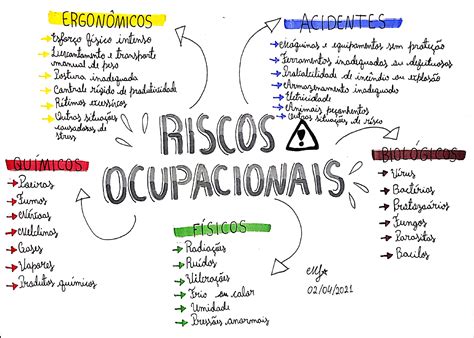 ERGONÔMICOS
Esforço físico intenso
Levantamento e transporte
manual de peso
Postura inadequada
Controle rígido de produtividade
Ritmos excessivos
Outras situações
causadoras de
stress
ACIDENTES
Máquinas e equipamentos sem proteção
Ferramentas inadequadas ou defeituosas
Probabilidade de incêndio ou explosão
Armazenamento inadequado
Eletricidade
Animais peçonhentos
Outras situações de risco
RISCOS
OCUPACIONAIS
QUÍMICOS
Poeiras
Fumos
Névoas
Neblinas
Gases
Vapores
Produtos químicos
FÍSICOS
Radiações
Ruídos
Vibrações
Frio ou calor
Umidade
Pressões anormais
BIOLÓGICOS
Vírus
Bactérias
Protozoários
Fungos
Parasitas
Bacilos
02/04/2021